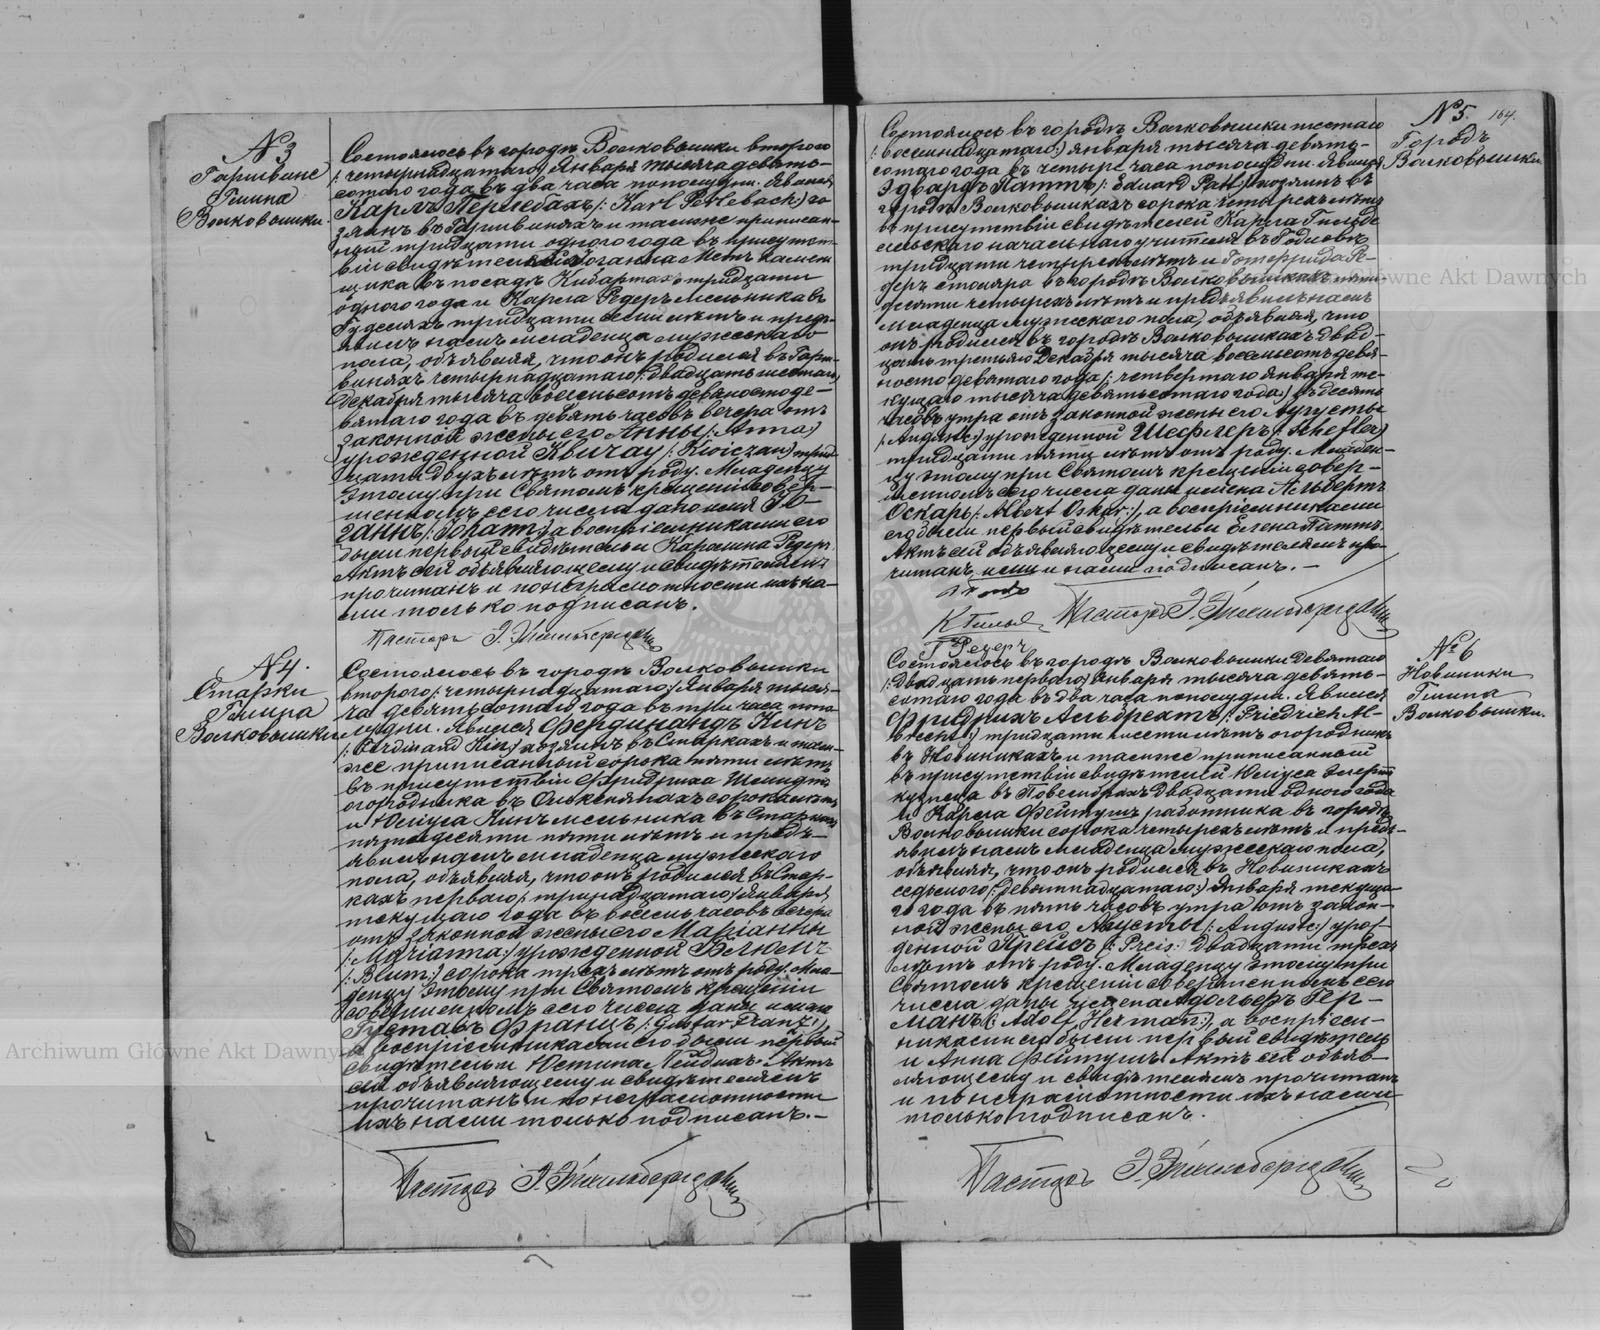 № 3
Гаришвине
Гмина
Волковышки.
Состоялось въ городѣ Волковышки втораго
/: четырнадцатаго:/ Января тысяча девять-
сотаго года въ два часа пополудни. Явился
Карлъ Перлебахъ /: Karl Perlebach:/ хо
зяинъ въ и тамже приписан-
ный тридцати одного года въ присутст-
віи свидѣтелей Іоганна Метъ камен
щика въ посадѣ Кибартахъ тридцати
одного года и Карла Редеръ мельника въ
тридцати семи лѣтъ и предъ-
явилъ намъ младенца мужескаго
пола, объявляя, что онъ родился въ Гарш-
виняхъ четырнадцатаго /: двадцать шестаго:/
Декабря тысяча восемьсотъ девяносто де-
вятаго года въ девять часовъ вечера отъ
законной жены его Анны /: Anna:/
урожденной Квичау /: Kwiczau:/ трид-
цати двухъ лѣтъ отъ роду. Младенцу
этому при Святомъ крещеніи совер-
шенномъ сего числа дано имя Іо-
ганнъ /: Johann:/ а воспріемниками его
были первый свидѣтель и Каролина Редеръ
Актъ сей объявляющему и свидѣтелямъ
прочитанъ и по неграмотности ихъ на-
ми только подписанъ.
Пасторъ
№ 4.
Старки
Гмина
Волковышки
Состоялось въ городѣ Волковышки
втораго /: четырнадцатаго:/ Января тыся-
ча девятьсотаго года въ три часа попо-
лудни. Явился Фердинандъ Кинъ
/: Ferdinand Kin:/ хозяинъ въ Старкахъ и там-
же приписанный сорока пяти лѣтъ
въ присутствіи Фридриха Шмидта
огородника въ сорока лѣтъ
и Юліуса Кинъ мельника въ Старкахъ
пятидесяти пяти лѣтъ и предъ-
явилъ намъ младенца мужескаго
пола, объявляя, что онъ родился въ Стар-
кахъ перваго /: тринадцатаго:/ Января
текущаго года въ восемь часовъ вечера
отъ законной жены его Маріанны
/: Marianna:/ урожденной Блюмъ
/: Blum:/ сорока трехъ лѣтъ отъ роду. Мла-
денцу этому при Святомъ крещеніи
совершенномъ сего числа даны имена
Густавъ Францъ /: Gustav Franz:/,
а воспріемниками его были первый
свидѣтель и Юстина Нейманъ. Актъ
сей объявляющему и свидѣтелямъ
прочитанъ и по неграмотности
ихъ нами только подписанъ.-
Пасторъ
№ 5. 164.
Городъ
Волковышки
Состоялось въ городѣ Волковышки шестаго
/: восемнадцатаго:/ Января тысяча девять-
сотаго года въ четыре часа пополудни. Явился
Эдвардъ Паттъ /: Eduard Patt:/ хозяинъ въ
городѣ Волковышкахъ сорока четырехъ лѣтъ
въ присутствіи свидѣтелей Карла Гильде
сельскаго начальнаго учителя въ
тридцати четырехъ лѣтъ и Готфрида Ре-
деръ столяра въ городѣ Волковышкахъ пяти-
десяти четырехъ лѣтъ и предъявилъ намъ
младенца мужескаго пола, объявляя, что
онъ родился въ городѣ Волковышкахъ двад-
цать третьяго Декабря тысяча восемьсотъ девя-
носто девятаго года /: четвертаго Января те-
кущаго тысяча девятьсотаго года:/ въ десять
часовъ утра отъ законной жены его Августы
/: Auguste:/ урожденной Шефлеръ /: Schefler:/
тридцати пяти лѣтъ отъ роду. Младен-
цу этому при Святомъ крещеніи совер-
шенномъ сего числа даны имена Альбертъ
Оскаръ /: Albert Oskar:/, а воспріемниками
его были первый свидѣтель и Елена Паттъ.
Актъ сей объявляющему и свидѣтелямъ про-
читанъ, ими и нами подписанъ.-
Пасторъ
Г Редеръ
№ 6
Новиники
Гмина
Волковышки.
Состоялось въ городѣ Волковышки девятаго
/: двадцать перваго:/ Января тысяча девять-
сотаго года въ два часа пополудни. Явился
Фридрихъ Альбрехтъ /: Friedrich Al-
brecht:/ тридцати шести лѣтъ огородникъ
въ Новиникахъ и тамже приписанный
въ присутствіи свидѣтелей Юліуса
кузнеца въ двадцати одного года
и Карла работника въ городѣ
Волковышки сорока четырехъ лѣтъ и предъ-
явилъ намъ младенца мужескаго пола,
объявляя, что онъ родился въ Новиникахъ
седьмаго /: девятнадцатаго:/ Января текуща-
го года въ пять часовъ утра отъ закон-
ной жены его Августы /: Auguste:/ урож-
денной Прейсъ /: Preis:/ двадцати трехъ
лѣтъ отъ роду. Младенцу этому при
Святомъ крещеніи совершенномъ сего
числа даны имена Адольфъ Гер-
манъ /: Adolf Herman:/, а воспріем-
никами его были первый свидѣтель
и Анна Актъ сей объяв-
ляющему и свидѣтелямъ прочитанъ
и по неграмотности ихъ нами
только подписанъ.
Пасторъ
Archiwum Główne Akt Dawnych
Główne Akt Dawnych